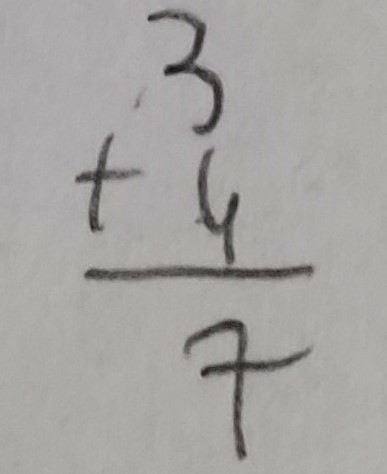 3
+ 4
7